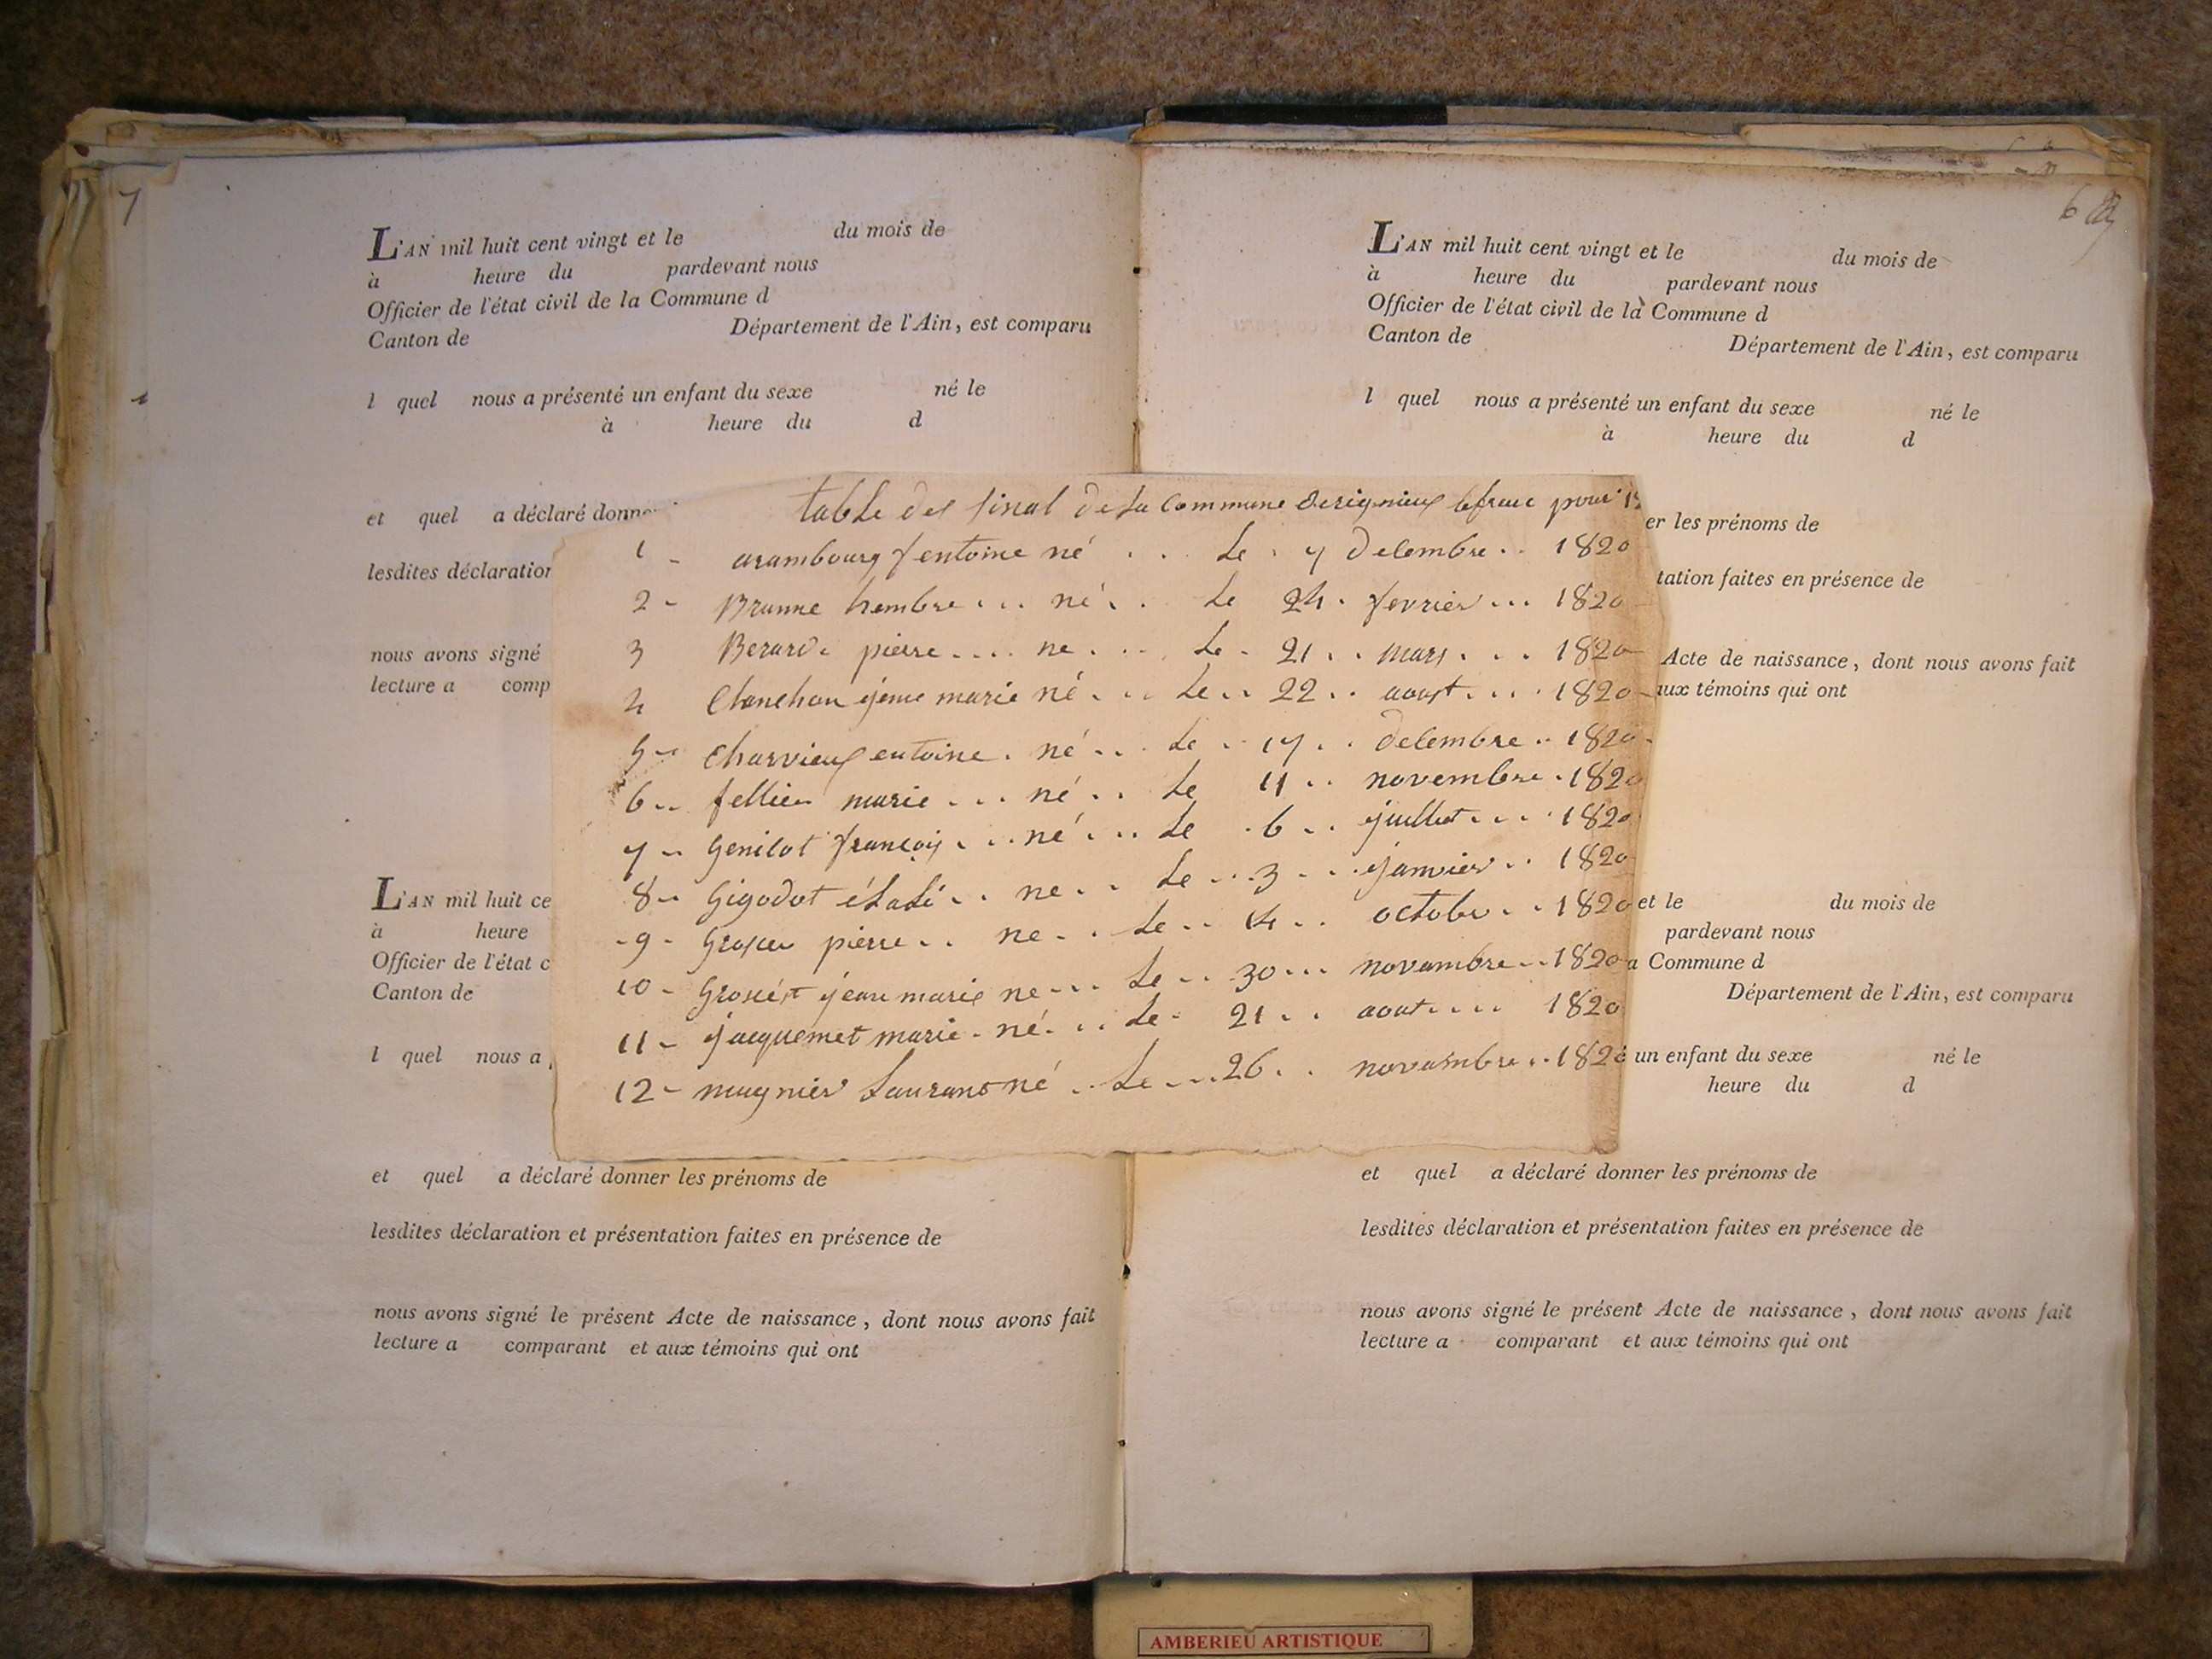 7
L'AN mil huit cent vingt et le du mois de
à heure du pardevant nous
Officier de l'état civil de la Commune d
Canton de Département de l'Ain, est comparu
l quel nous a présenté un enfant du sexe né le
à heure du d
et quel a déclaré donner
lesdites déclaration
nous avons signé
lecture a comp
L'AN mil huit ce
à heure
Officier de l'état c
Canton de
l quel nous a
et quel a déclaré donner les prénoms de
lesdites déclaration et présentation faites en présence de
nous avons signé le présent Acte de naissance, dont nous avons fait
lecture a comparant et aux témoins qui ont
table des de la commune pour
1 - arambourg né . . . Le . 7 decembre . . 1820
2 - né . . Le 24 . fevrier ... 1820
3 Berard . pierre .... ne . . . . Le . 21 . . mars . . . 1820
4 marie né . . . Le . . 22 . . aoust . . . 1820
5 - Charvieux entoine . né . . . Le . . 17 . . decembre . . 1820
6 .. fellier marie . . . né . . Le 11 . . novembre . 1820
7 - françois . . . né . . . Le . 6 . . juillet . . . . 1820
8 - Gigodot . . ne . . Le . . 3 . . . janvier . . 1820
- 9 - pierre . . ne . . Le . . 14 . . octobre . . 1820
10 - jean marie ne - - - Le . . 30 ... novambre . . 1820
11 - jacquemet marie - né . . . Le - 21 . . aout .... 1820
12 - magnier Laurant né . . Le . . . 26 . . novambre . . 1820
6
L'AN mil huit cent vingt et le du mois de
à heure du pardevant nous
Officier de l'état civil de la Commune d
Canton de Département de l'Ain, est comparu
l quel nous a présenté un enfant du sexe né le
à heure du d
er les prénoms de
tation faites en présence de
Acte de naissance, dont nous avons fait
aux témoins qui ont
et le du mois de
pardevant nous
a Commune d
Département de l'Ain, est comparu
un enfant du sexe né le
heure du d
et quel a déclaré donner les prénoms de
lesdites déclaration et présentation faites en présence de
nous avons signé le présent Acte de naissance, dont nous avons fait
lecture a comparant et aux témoins qui ont
AMBERIEU ARTISTIQUE